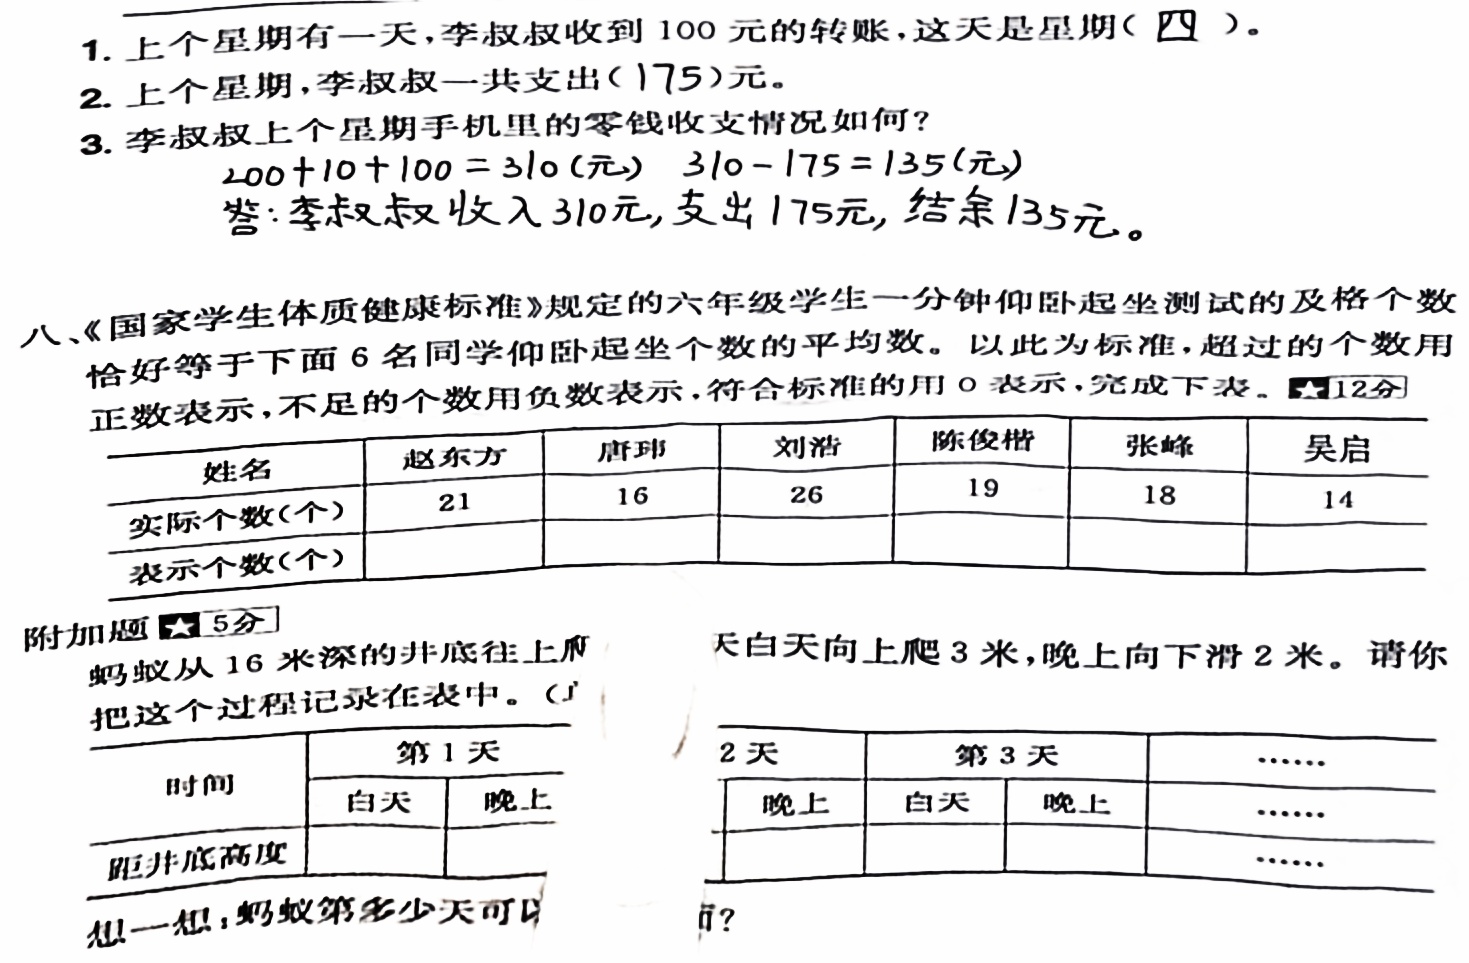 1. 上个星期有一天,李叔叔收到 100 元的转账,这天是星期( 四 )。
2. 上个星期,李叔叔一共支出(175)元。
3. 李叔叔上个星期手机里的零钱收支情况如何?
200+10+100=310(元) 310-175=135(元)
答:李叔叔收入310元,支出175元,结余135元。
八、《国家学生体质健康标准》规定的六年级学生一分钟仰卧起坐测试的及格个数
恰好等于下面 6 名同学仰卧起坐个数的平均数。以此为标准,超过的个数用
正数表示,不足的个数用负数表示,符合标准的用 0 表示,完成下表。★12分
姓名 赵东方 唐玮 刘浩 陈俊楷 张峰 吴启
实际个数(个) 21 16 26 19 18 14
表示个数(个)
附加题 ★5分
蚂蚁从 16 米深的井底往上爬 天白天向上爬 3 米,晚上向下滑 2 米。请你
把这个过程记录在表中。(
时间 第 1 天 2 天 第 3 天 ……
白天 晚上 晚上 白天 晚上 ……
距井底高度 ……
想一想:蚂蚁第多少天可以 ?